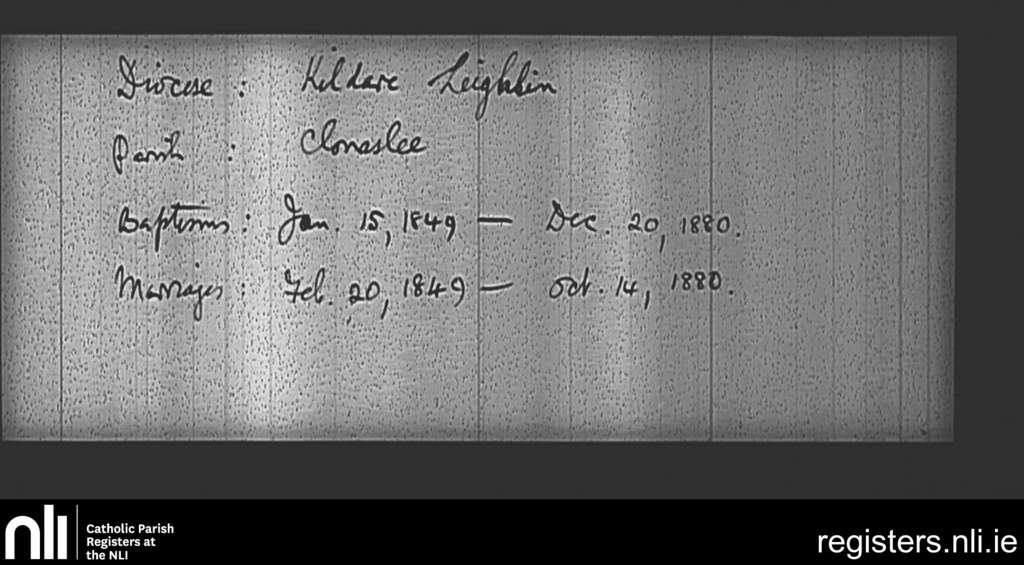 Diocese : Kildare Leighlin
Parish : Clonaslee
Baptisms : Jan. 15, 1849 — Dec. 20, 1880.
Marriages : Feb. 20, 1849 — Oct. 14, 1880.
nli
Catholic Parish
Registers at
the NLI
registers.nli.ie